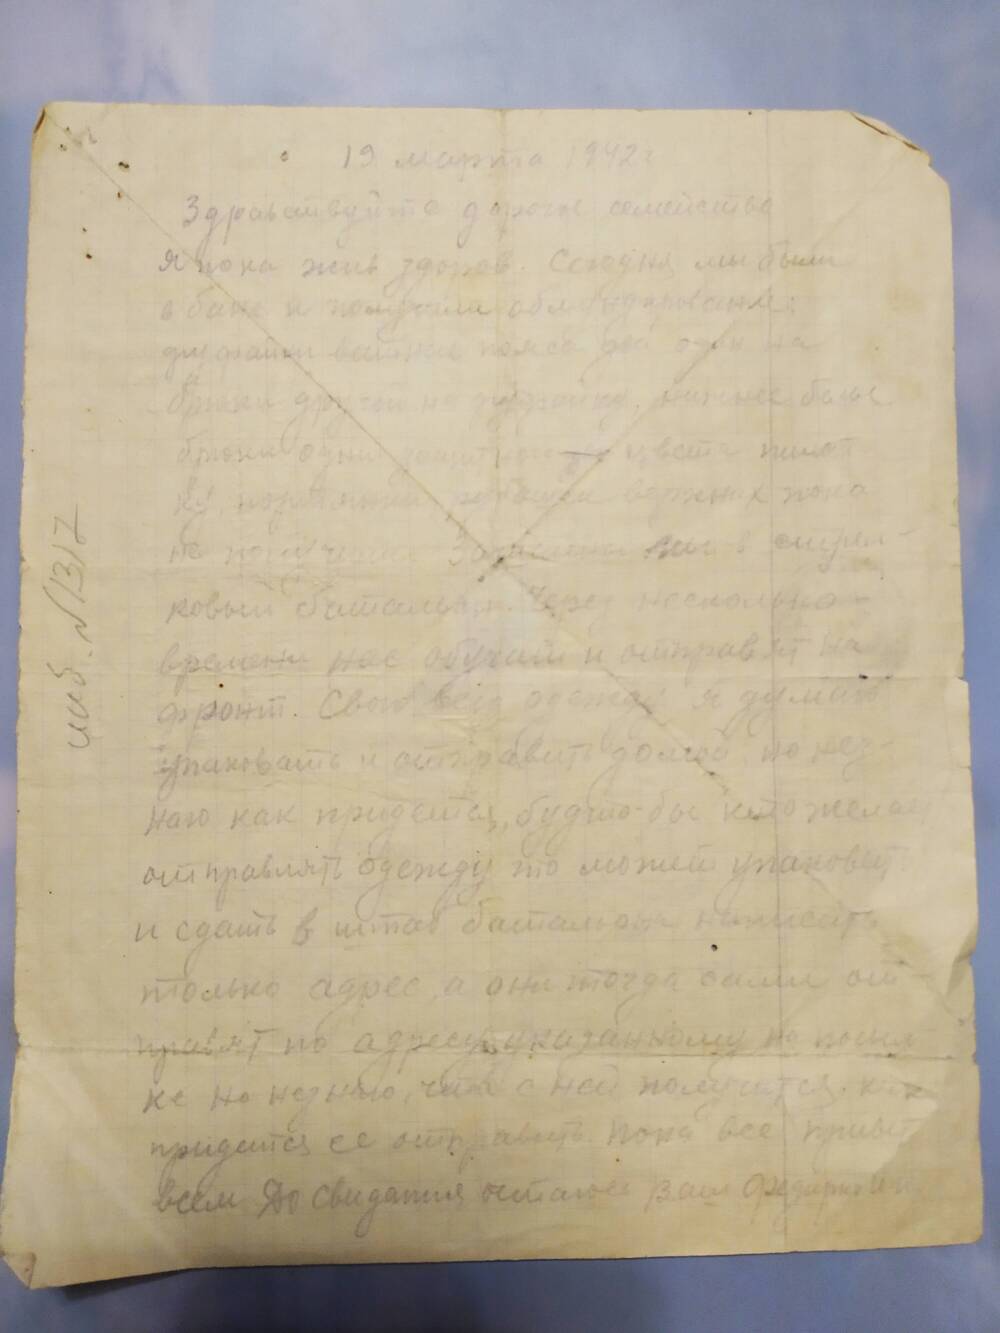 19 марта 1942 г
Здравствуйте дорогое семейство
я пока жив здоров. Сегодня мы были
в бане и получили обмундирование:
фуфайки ватные пояса два один на
брюки другой на фуфайку, нижнее белье
брюки одни защитного цвета пилот
ку, рубашки верхних пока
не получили Зачислены мы в стрел-
ковый батальон. Через несколько
времени нас обучат и отправят на
фронт. Свою всю одежду я думаю
упаковать и отправить домой, но нез-
наю как придется, будто-бы кто желает
отправлять одежду то может упаковать
и сдать в штаб батальона написать
только адрес, а они тогда сами от-
правят по адресу указанному на посыл
ке но незнаю, что с ней получится. как
придется ее отправить Пока все привет
всем До свидания остаюсь Ваш
инв. №1317